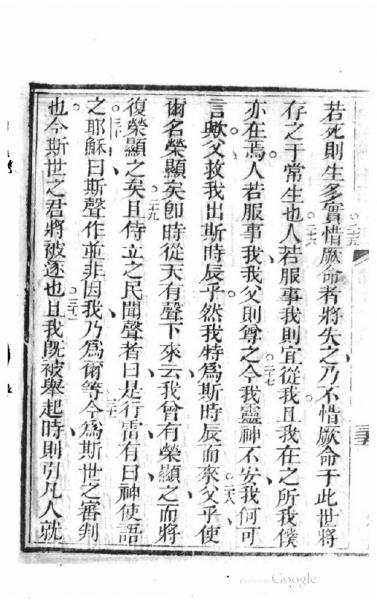 若死則生多實惜厥命者將失之乃不惜厥命于此世將
存之于常生也人若服事我則宜從我且我在之所我僕
亦在焉人若服事我我父則尊之今我靈神不安我何可
言歟父救我出斯時辰乎然我特爲斯時辰而來父乎使
爾名榮顯矣卽時從天有聲下來云我曾有榮顯之而將
復榮顯之矣且侍立之民聞聲者曰是行雷有曰神使語
之耶穌曰斯聲作並非因我乃爲爾等今爲斯世之審判
也今斯世之君將被逐也且我旣被舉起時則引凡人就
二五
二六
二七
二八
二九
三十
三一
Google